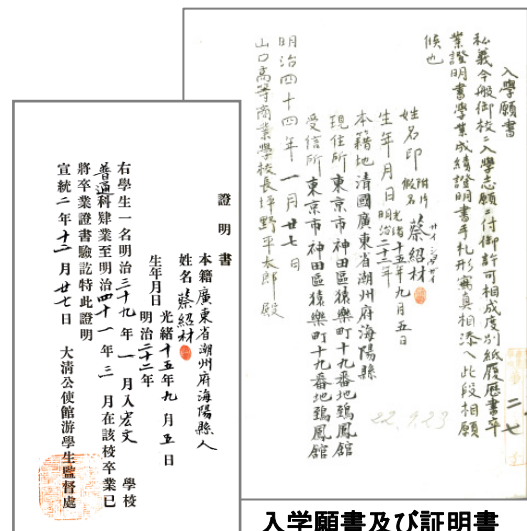 入學願書
私義今般御校ニ入學志願ニ付御許可相成度別紙履歴書卒
業證明書學業成績證明書手札形寫真相添ヘ此段相願
候也
姓名印 附片假名 蔡紹材
生年月日 光緒十五年九月五日
明治二十二年
本籍地清國廣東省潮州府海陽縣
現住所東京市神田區猿樂町十九番地鵄鳳館
受信所東京市神田區猿樂町十九番地鵄鳳館
明治四十四年一月廿七日
山口高等商業學校長坪野平太郎殿
二七
22.9.23
證明書
本籍廣東省潮州府海陽縣人
姓名蔡紹材
生年月日 光緒十五年九月五日
明治二十二年
右學生一名明治三十九年一月入宏文學校
普通科肄業至明治四十一年三月在該校卒業已
將卒業證書驗訖特此證明
宣統二年十二月廿七日 大清公使館游學生監督處
入学願書及び証明書